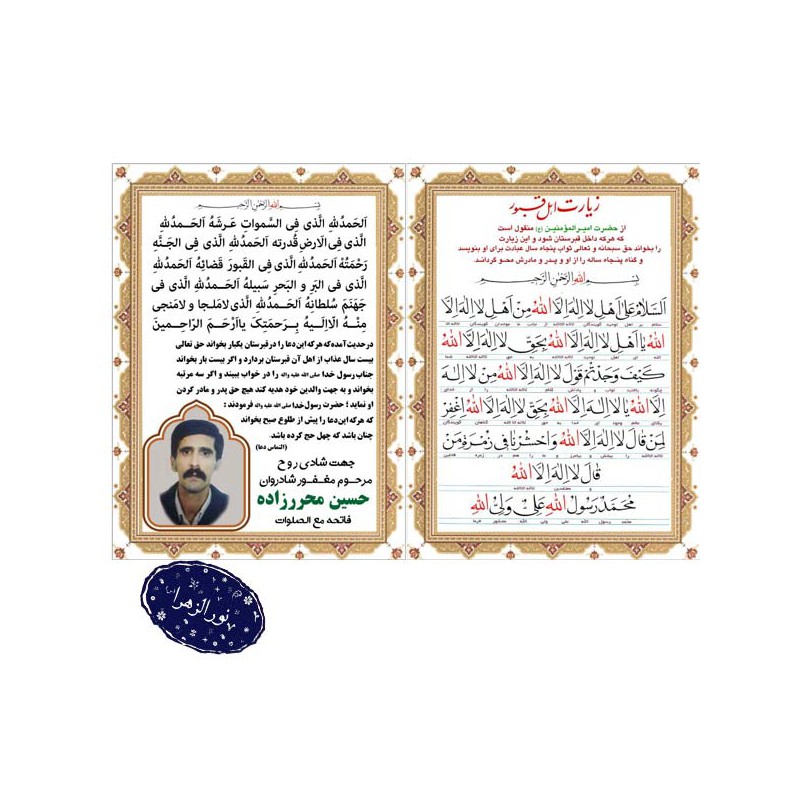 زیارت اهل قبور
از حضرت امیرالمؤمنین (ع) منقول است
که هرکه داخل قبرستان شود و این زیارت
را بخواند حق سبحانه و تعالی ثواب پنجاه سال عبادت برای او بنویسد
و گناه پنجاه ساله را از او و پدر و مادرش محو گرداند
بِسْمِ اللهِ الرَّحْمنِ الرَّحیمِ
اَلسَّلامُ عَلی اَهْلِ لا اِلهَ اِلَّا اللهُ مِنْ اَهْلِ لا اِلهَ اِلَّا
اللهُ یا اَهْلَ لا اِلهَ اِلَّا اللهُ بِحَقِّ لا اِلهَ اِلَّا اللهُ
کَیْفَ وَجَدْتُمْ قَوْلَ لا اِلهَ اِلَّا اللهُ مِنْ لا اِلهَ
اِلَّا اللهُ یا لا اِلهَ اِلَّا اللهُ بِحَقِّ لا اِلهَ اِلَّا اللهُ اِغْفِرْ
لِمَنْ قالَ لا اِلهَ اِلَّا اللهُ وَاحْشُرْنا فی زُمْرَةِ مَنْ
قالَ لا اِلهَ اِلَّا اللهُ
مُحَمَّدٌ رَسُولُ اللهِ عَلِیٌّ وَلِیُّ اللهِ
بِسْمِ اللهِ الرَّحْمنِ الرَّحیمِ
اَلحَمدُللهِ الَّذی فِی السَّمواتِ عَرشَهُ اَلحَمدُللهِ
الَّذی فِی الاَرضِ قُدرته اَلحَمدُللهِ الَّذی فِی الجَنَّهِ
رَحْمَتُهُ اَلحَمدُللهِ الَّذی فِی القُبورَ قَضائِهُ اَلحَمدُللهِ
الَّذی فِی البَرِ و البَحرِ سَبیلهُ اَلحَمدُللهِ الَّذی فی
جَهَنَمَ سُلطانِهُ اَلحَمدُللهِ الَّذی لامَلجا و لامَنجی
مِنْهُ اِلا اِلَیهِ بِرَحمَتِکَ یا اَرْحَمَ الرّاحِمینَ
در حدیث آمده که هرکه این دعا را در قبرستان یکبار بخواند حق تعالی
بیست سال عذاب از اهل آن قبرستان بردارد و اگر بیست بار بخواند
جناب رسول خدا صلی الله علیه و اله را در خواب ببیند و اگر سه مرتبه
بخواند و به جهت والدین خود هدیه کند هیچ حق پدر و مادر گردن
او نماید ؛ حضرت رسول خدا صلی الله علیه و اله فرمودند :
که هرکه این دعا را پیش از طلوع صبح بخواند
چنان باشد که چهل حج کرده باشد.
(التماس دعا)
جهت شادی روح
مرحوم مغفور شادروان
حسین محررزاده
فاتحه مع الصلوات
نورالزهرا